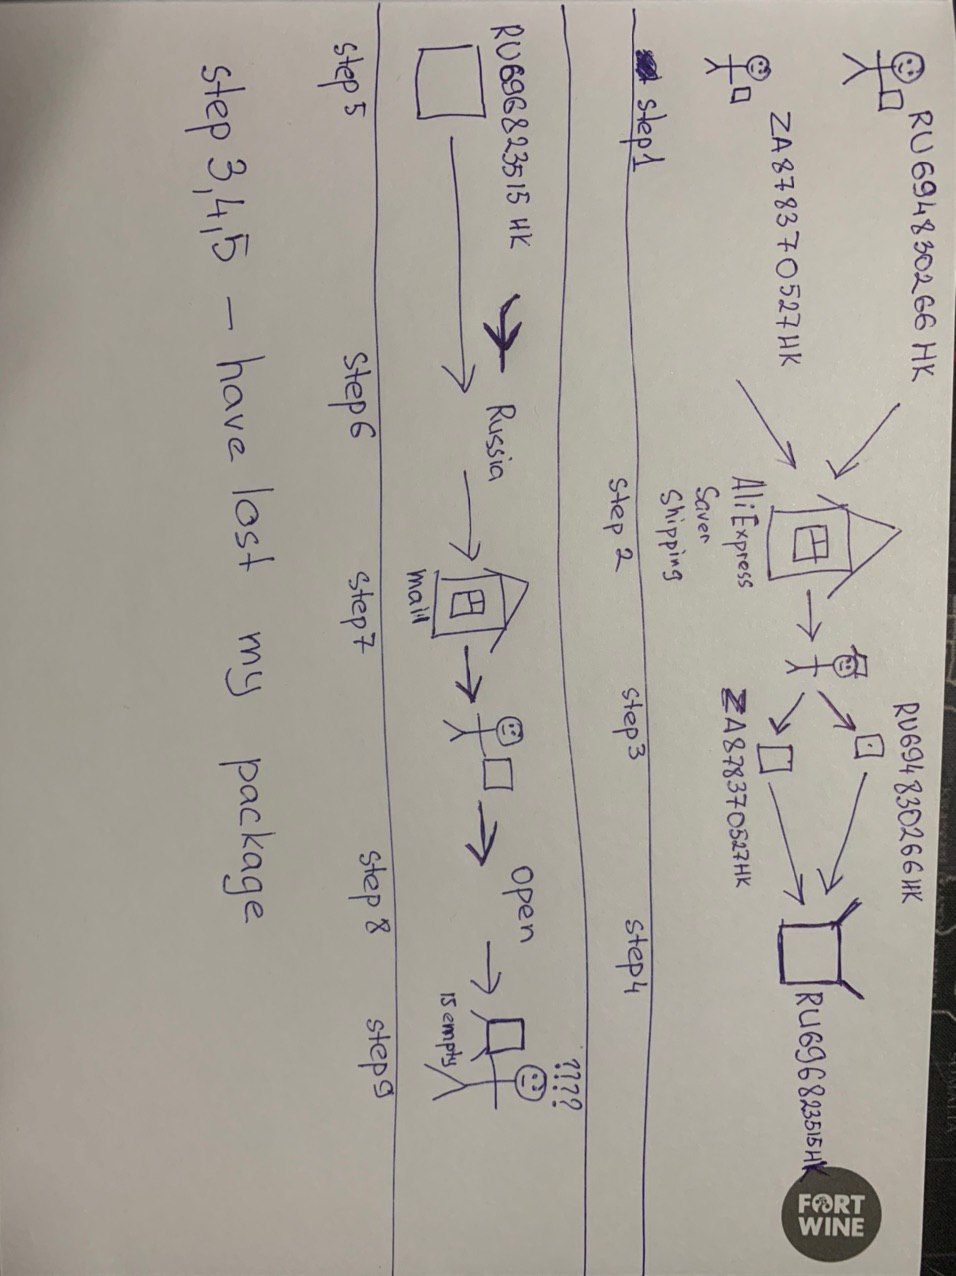 RU694830266HK
ZA878370527HK
AliExpress
Saver
Shipping
RU694830266HK
ZA878370527HK
RU696823515HK
Step1
Step 2
Step3
Step4
RU696823515HK
Russia
mail
Open
is empty
????
Step5
Step6
Step7
Step 8
Step9
Step 3,4,5 – have lost my package
FORT
WINE